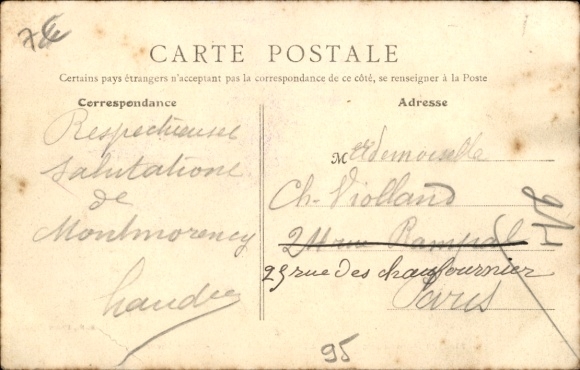 CARTE POSTALE
Certains pays étrangers n'acceptant pas la correspondance de ce côté, se renseigner à la Poste
Correspondance
Adresse
Respectueuses
Salutations
de
Montmorency
Mademoiselle
Ch. Violland
24 rue Rampal
25 rue des chaufournier
Paris
95